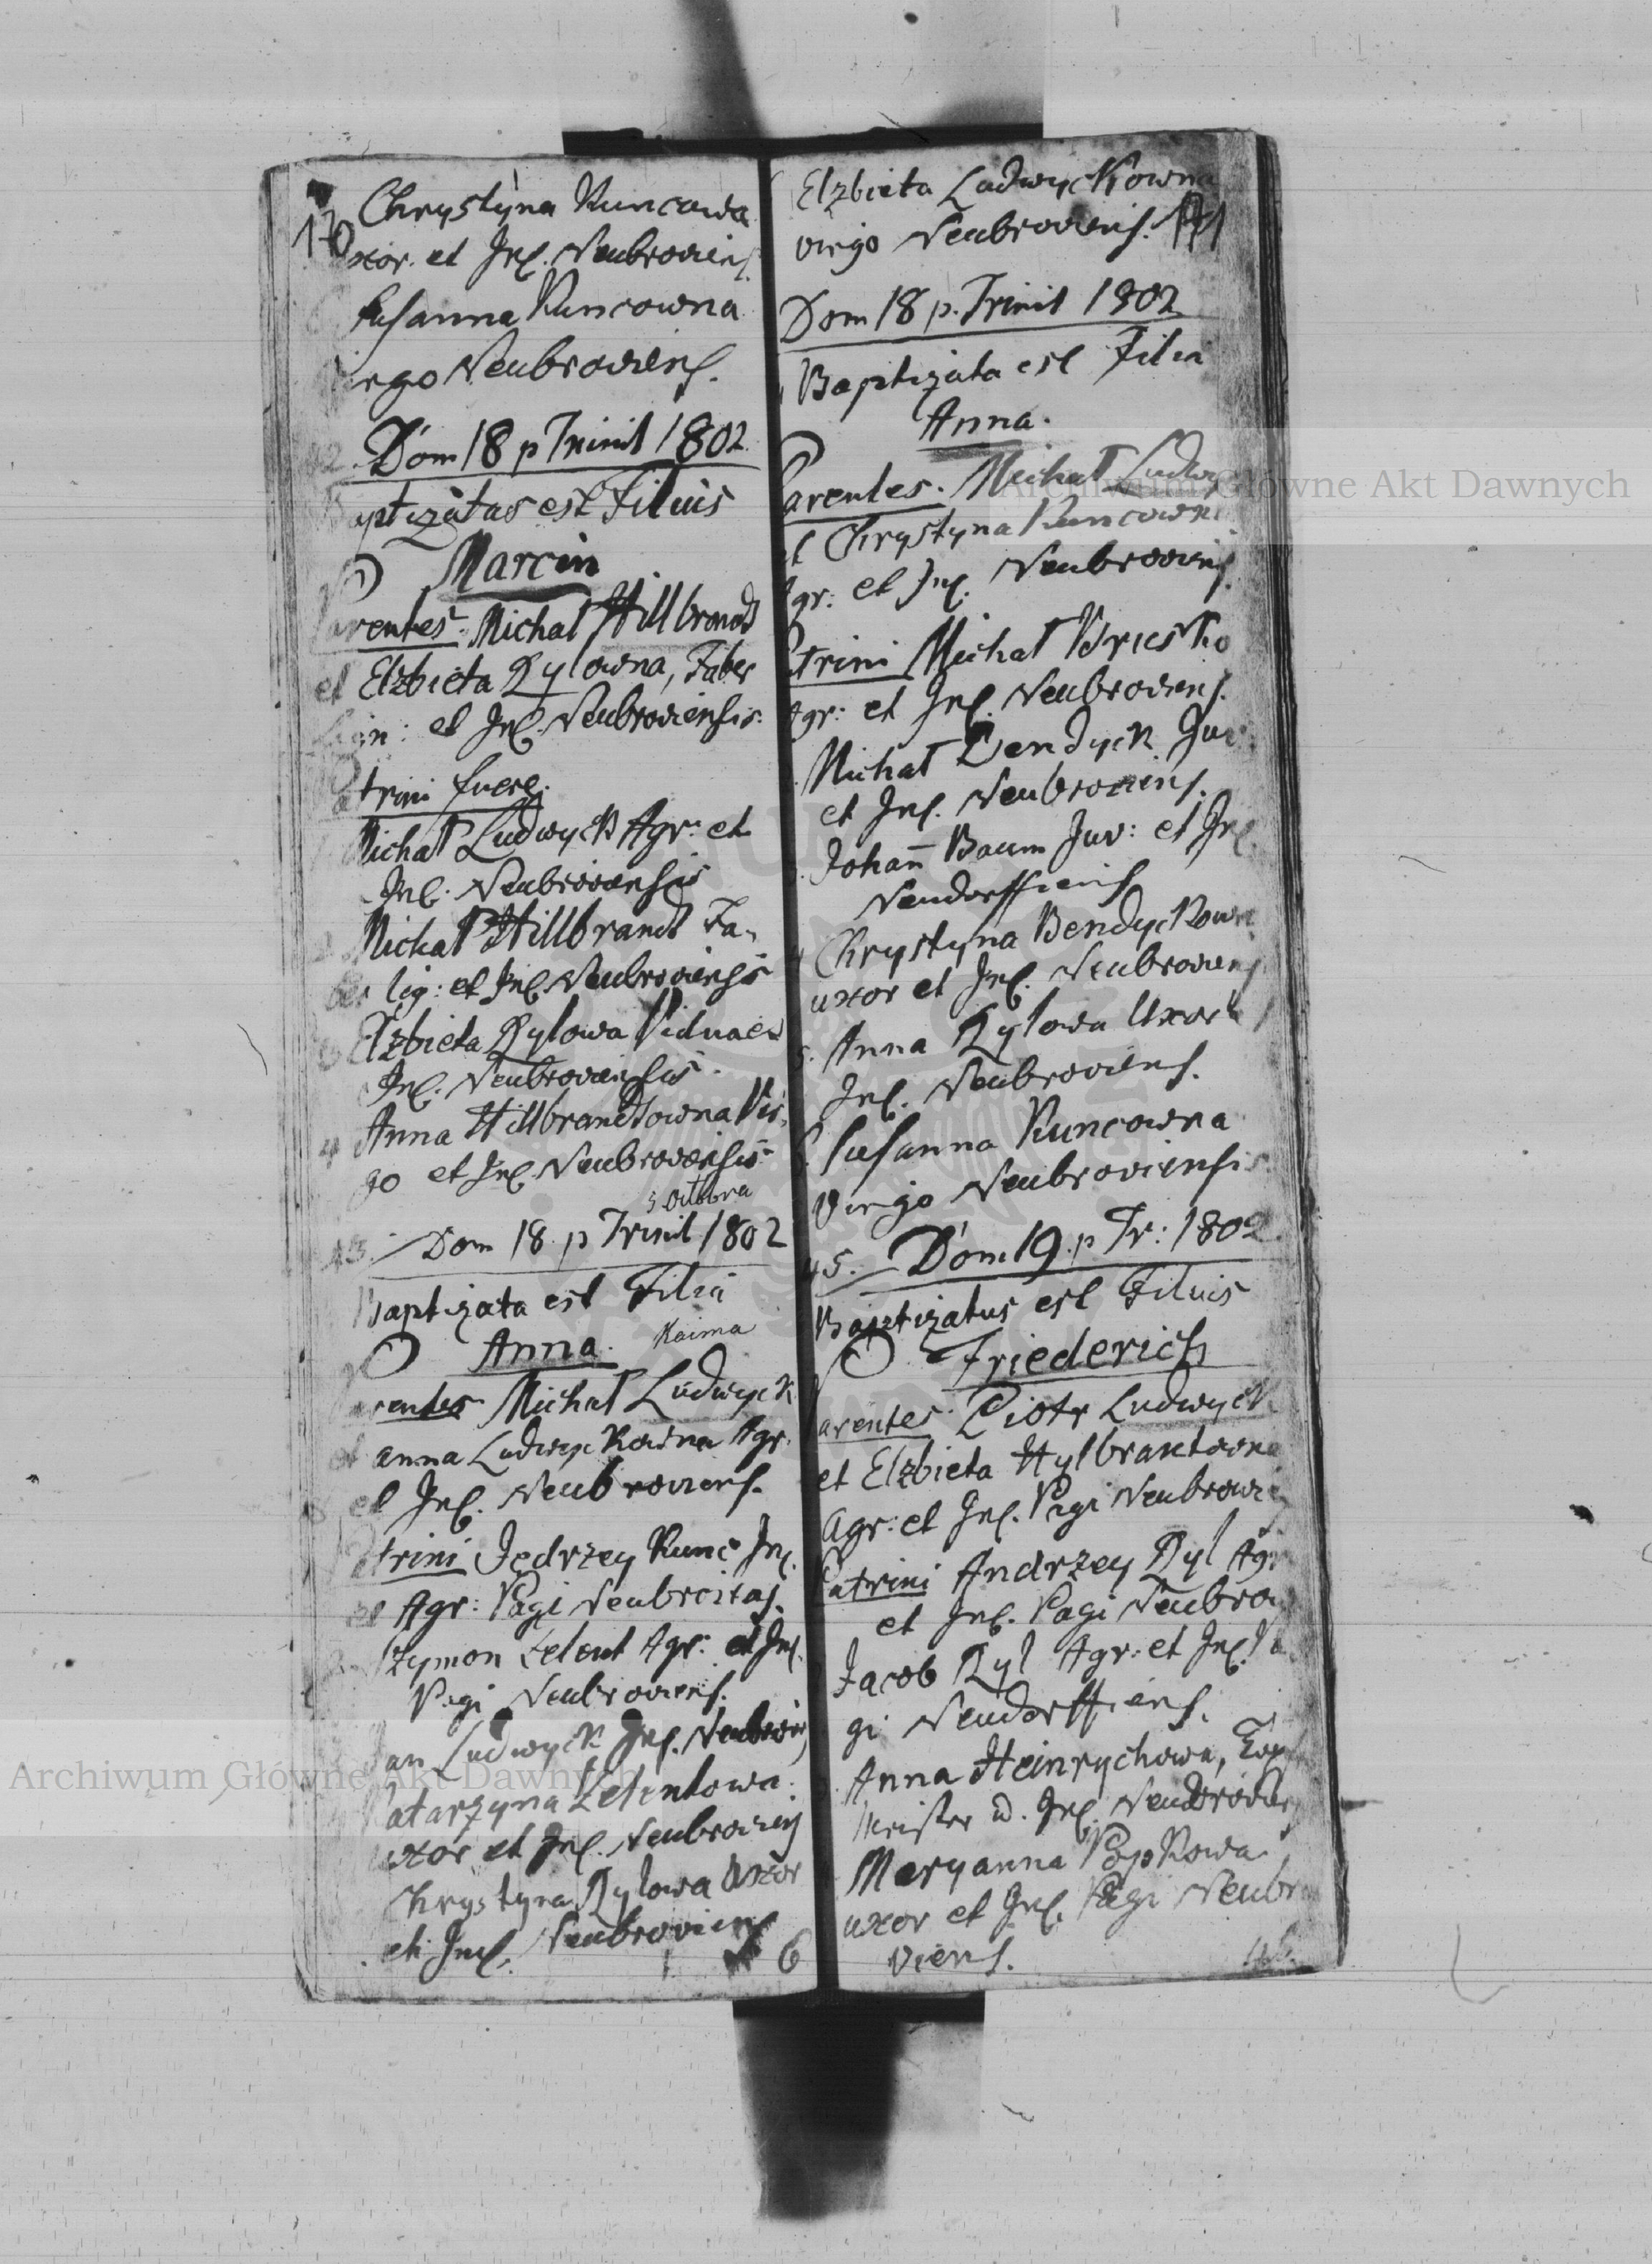 170
Chrystyna Kuncowa
xor. et Inf. Neubroviens.
Susanna Kuncowna
irgo Neubroviens.
42. Dom 18 p Trinit 1802.
aptizatus est Filius
Marcin
Parentes. Michał Hillbrand
et Elzbieta Rylowna, Faber
lign: et Inf. Neubroviensis.
Patrini fuere.
Michał Ludwyck Agr: et
Inf. Neubroviensis
Michał Hillbrand Fa-
ber lig: et Inf. Neubroviensis
3 Elzbieta Rylowa Vidua et
Inf. Neubroviensis.
4 Anna Hillbrandowna Vir-
go et Inf. Neubroviensis
3 Octobra
43. Dom 18 p Trinit 1802
Baptizata est Filia
Anna. Kaima
Parentes Michał Ludwyck
et anna Ludwyckowna Agr.
et Inf. Neubroviens.
Patrini Jedrzey Kunc Inf.
et Agr: Pagi Neubrovias.
Szymon Zelent Agr: et Inf.
Pagi Neubroviens.
Jan Ludwyck Inf. Neubrovi
Katarzyna Zelentowa
uxor et Inf. Neubroviens
Chrystyna Rylowa Uxor
et Inf. Neubroviens
6
Elzbieta Ludwyckowna
virgo Neubroviens. 171
Dom 18 p. Trinit 1802
Baptizata est Filia
Anna.
Parentes. Michał Ludwy
et Chrystyna Kuncowna
Agr: et Inf. Neubroviens.
Patrini Michał Kruszko
Agr: et Inf. Neubroviens.
Michał Bendyck Juv:
et Inf. Neubroviens.
Johan̄ Baum Juv: et Inf.
Neudorffiens
4 Chrystyna Bendyckowa
uxor et Inf. Neubroviens
5. Anna Rylowa Uxor et
Inf. Neubroviens.
6. Susanna Kuncowna
Virgo Neubroviensis
45. Dom 19. p Tr: 1802
Baptizatus est Filius
Friederich
Parentes. Piotr Ludwyck
et Elzbieta Hylbrantowna
Agr: et Inf. Pagi Neubrovi
Patrini Andrzey Ryl Agr
et Inf. Pagi Neubrov
Jacob Ryl Agr: et Inf. Pa
gi Neudorffiens.
Anna Heinrychowa,
et Inf. Neubroviens
Maryanna Popkowa
uxor et Inf. Pagi Neubro
viens.
46.
Archiwum Główne Akt Dawnych
Archiwum Główne Akt Dawnych